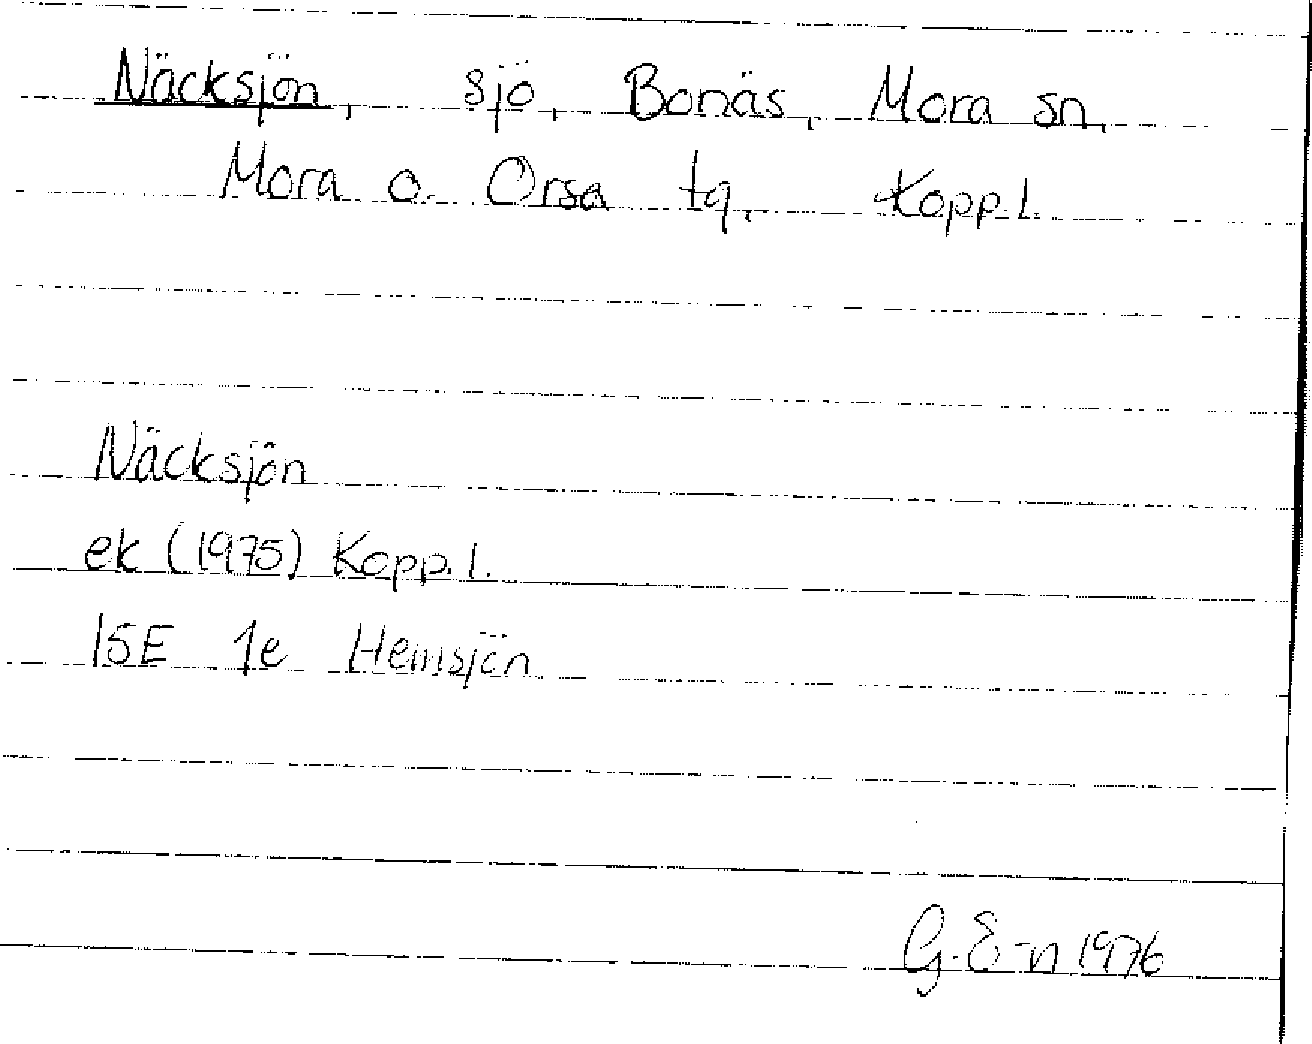 Näcksjön, sjö, Bonäs, Mora sn,
Mora o. Orsa tg, Kopp.l.
Näcksjön
ek (1975) Kopp.l.
15E 1e Hemsjön
G. E-n 1976